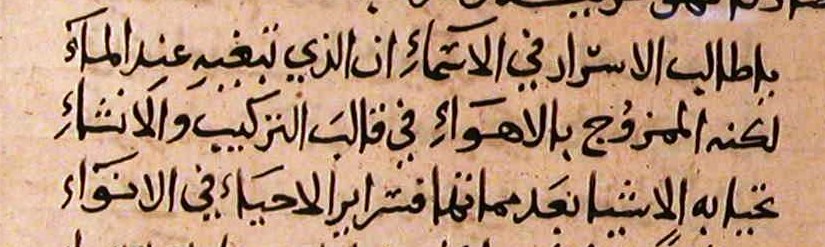 يا طالب الاسرار في الاسماءِ ان الذي تبغيه عند الماءَ
لكنه الممزوُج بالاهوَاءِ في قالبَ التركيب والانشاءِ
تحيا به الاشيا بعَد مماتها فسَرايرا لاحيَاء في الانوَاء